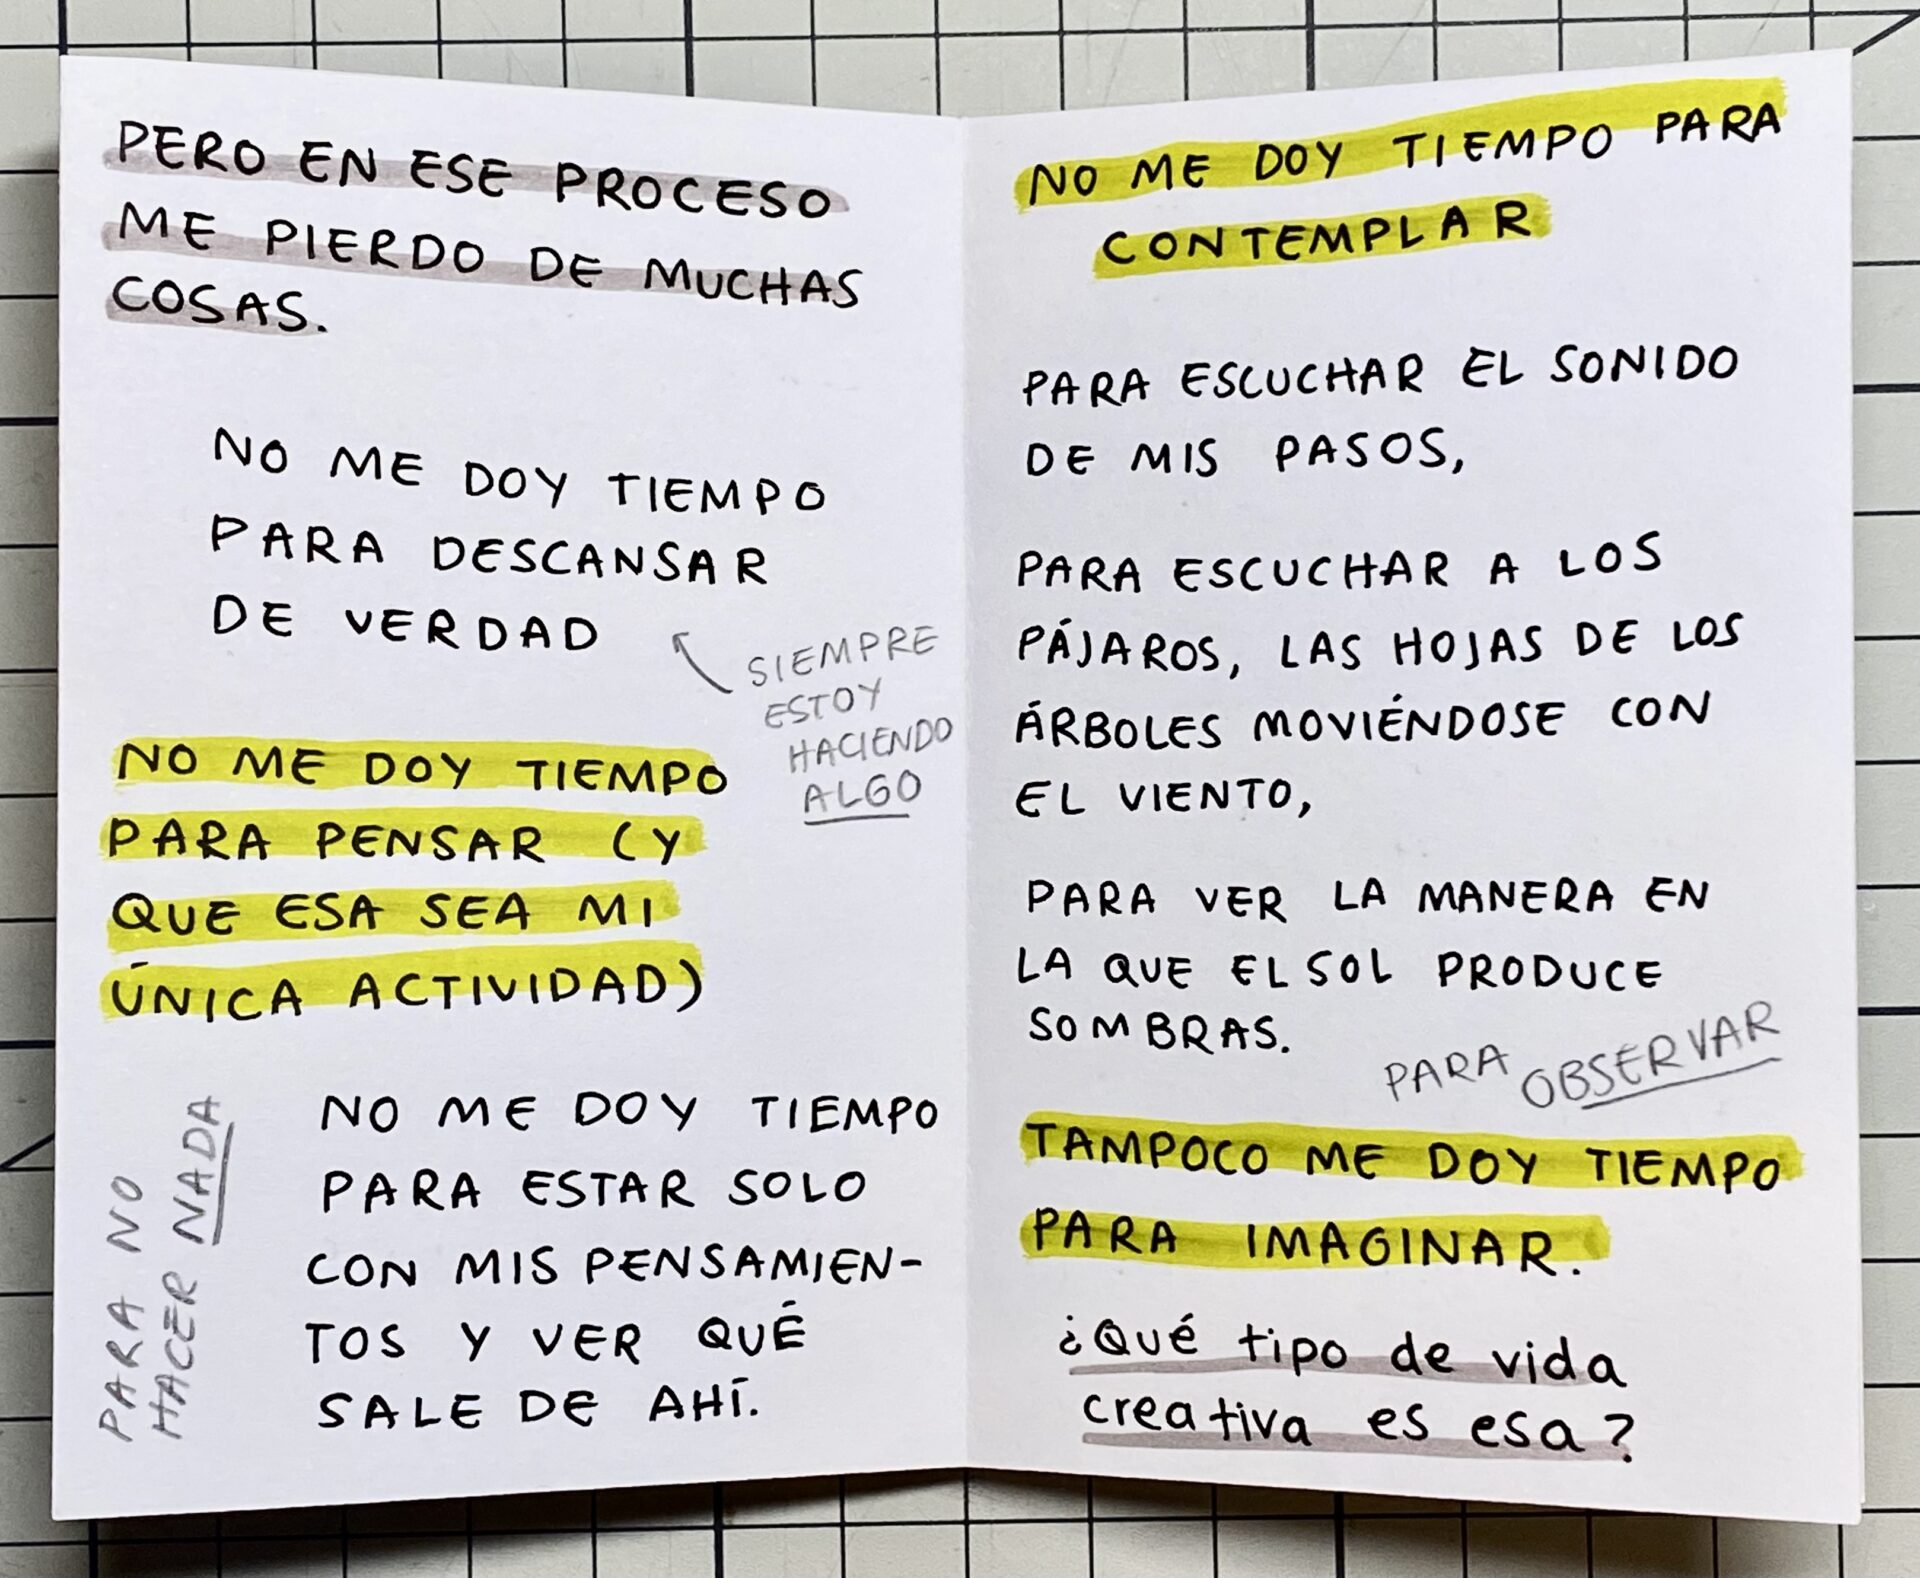 PERO EN ESE PROCESO
ME PIERDO DE MUCHAS
COSAS.
NO ME DOY TIEMPO
PARA DESCANSAR
DE VERDAD
SIEMPRE
ESTOY
HACIENDO
ALGO
NO ME DOY TIEMPO
PARA PENSAR (Y
QUE ESA SEA MI
ÚNICA ACTIVIDAD)
PARA NO
HACER NADA
NO ME DOY TIEMPO
PARA ESTAR SOLO
CON MIS PENSAMIEN-
TOS Y VER QUÉ
SALE DE AHÍ.
NO ME DOY TIEMPO PARA
CONTEMPLAR
PARA ESCUCHAR EL SONIDO
DE MIS PASOS,
PARA ESCUCHAR A LOS
PÁJAROS, LAS HOJAS DE LOS
ÁRBOLES MOVIÉNDOSE CON
EL VIENTO,
PARA VER LA MANERA EN
LA QUE EL SOL PRODUCE
SOMBRAS.
PARA OBSERVAR
TAMPOCO ME DOY TIEMPO
PARA IMAGINAR.
¿Qué tipo de vida
creativa es esa?